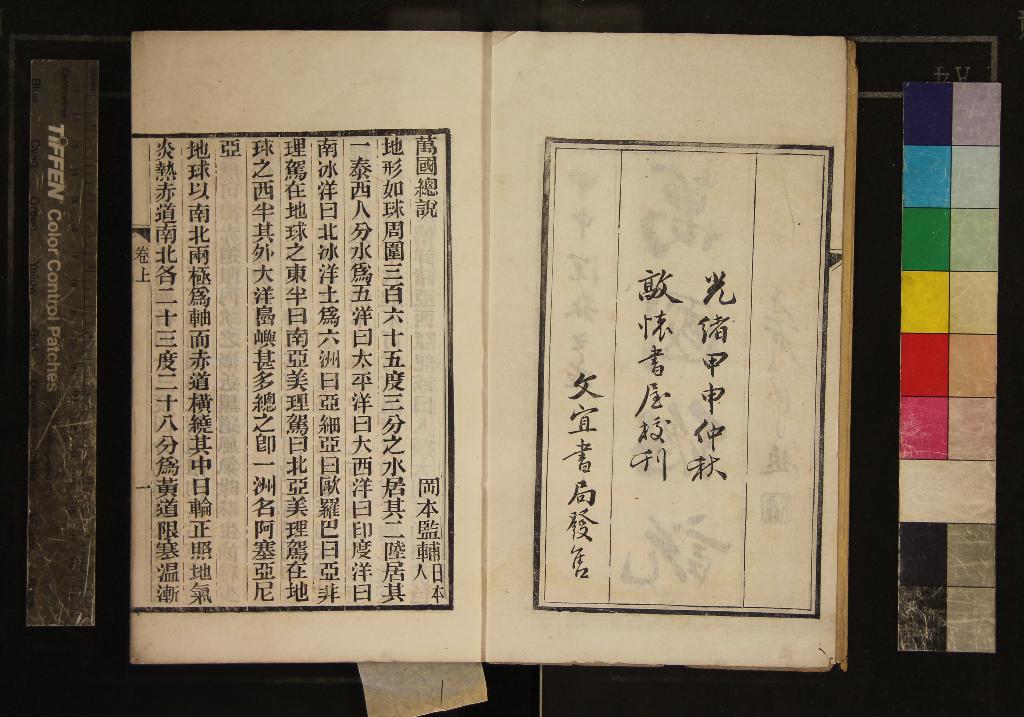 光緒甲申仲秋
敲懷書屋校刊
文宜書局發售
萬國總說 岡本監輔日本人
地形如球周圍三百六十五度三分之水居其二陸居其
一泰西人分水為五洋曰太平洋曰大西洋曰印度洋曰
南冰洋曰北冰洋土為六洲曰亞細亞曰歐羅巴曰亞非
理駕在地球之東半曰南亞美理駕曰北亞美理駕在地
球之西半其外大洋島嶼甚多總之卽一洲名阿塞亞尼
亞
地球以南北兩極為軸而赤道橫繞其中日輪正照地氣
炎熱赤道南北各二十三度二十八分為黃道限寒溫漸
卷上
一
TIFFEN Color Control Patches
A4